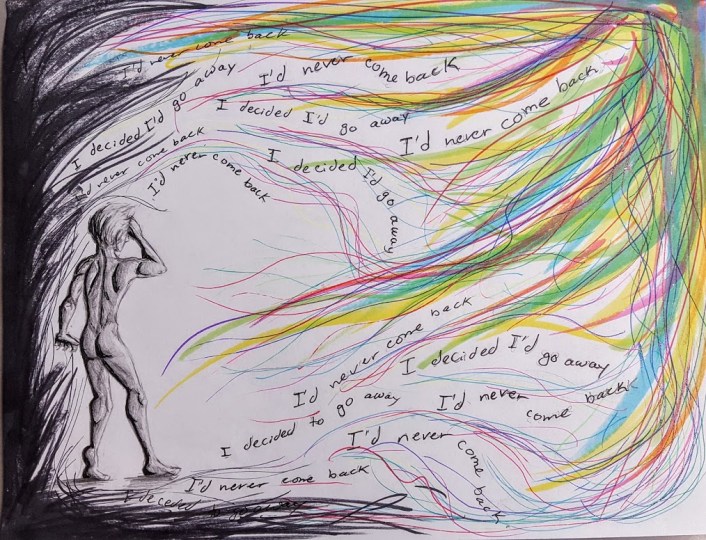 I'd never come back
I'd never come back
I decided I'd go away
I decided I'd go away
I'd never come back
I'd never come back
I'd never come back
I decided I'd go away
I'd never come back
I decided I'd go away
I'd never come back
I'd never come back
I decided to go away
I'd never come back
I'd never come back
I decided to go away